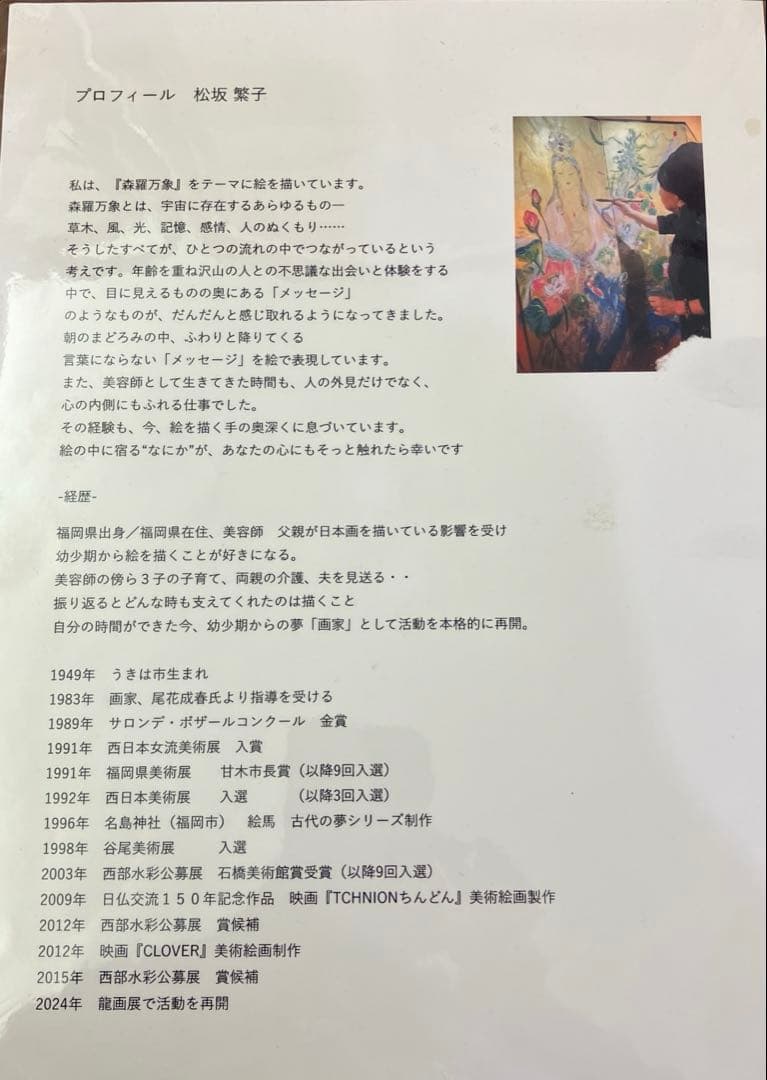 プロフィール　松坂 繁子
私は、『森羅万象』をテーマに絵を描いています。
森羅万象とは、宇宙に存在するあらゆるもの―
草木、風、光、記憶、感情、人のぬくもり……
そうしたすべてが、ひとつの流れの中でつながっているという
考えです。年齢を重ね沢山の人との不思議な出会いと体験をする
中で、目に見えるものの奥にある「メッセージ」
のようなものが、だんだんと感じ取れるようになってきました。
朝のまどろみの中、ふわりと降りてくる
言葉にならない「メッセージ」を絵で表現しています。
また、美容師として生きてきた時間も、人の外見だけでなく、
心の内側にもふれる仕事でした。
その経験も、今、絵を描く手の奥深くに息づいています。
絵の中に宿る“なにか”が、あなたの心にもそっと触れたら幸いです
-経歴-
福岡県出身／福岡県在住、美容師　父親が日本画を描いている影響を受け
幼少期から絵を描くことが好きになる。
美容師の傍ら３子の子育て、両親の介護、夫を見送る・・
振り返るとどんな時も支えてくれたのは描くこと
自分の時間ができた今、幼少期からの夢「画家」として活動を本格的に再開。
1949年　うきは市生まれ
1983年　画家、尾花成春氏より指導を受ける
1989年　サロンデ・ボザールコンクール　金賞
1991年　西日本女流美術展　入賞
1991年　福岡県美術展　　甘木市長賞（以降9回入選）
1992年　西日本美術展　　入選　　　（以降3回入選）
1996年　名島神社（福岡市）　絵馬　古代の夢シリーズ制作
1998年　谷尾美術展　　　入選
2003年　西部水彩公募展　石橋美術館賞受賞（以降9回入選）
2009年　日仏交流１５０年記念作品　映画『TCHNIONちんどん』美術絵画製作
2012年　西部水彩公募展　賞候補
2012年　映画『CLOVER』美術絵画制作
2015年　西部水彩公募展　賞候補
2024年　龍画展で活動を再開